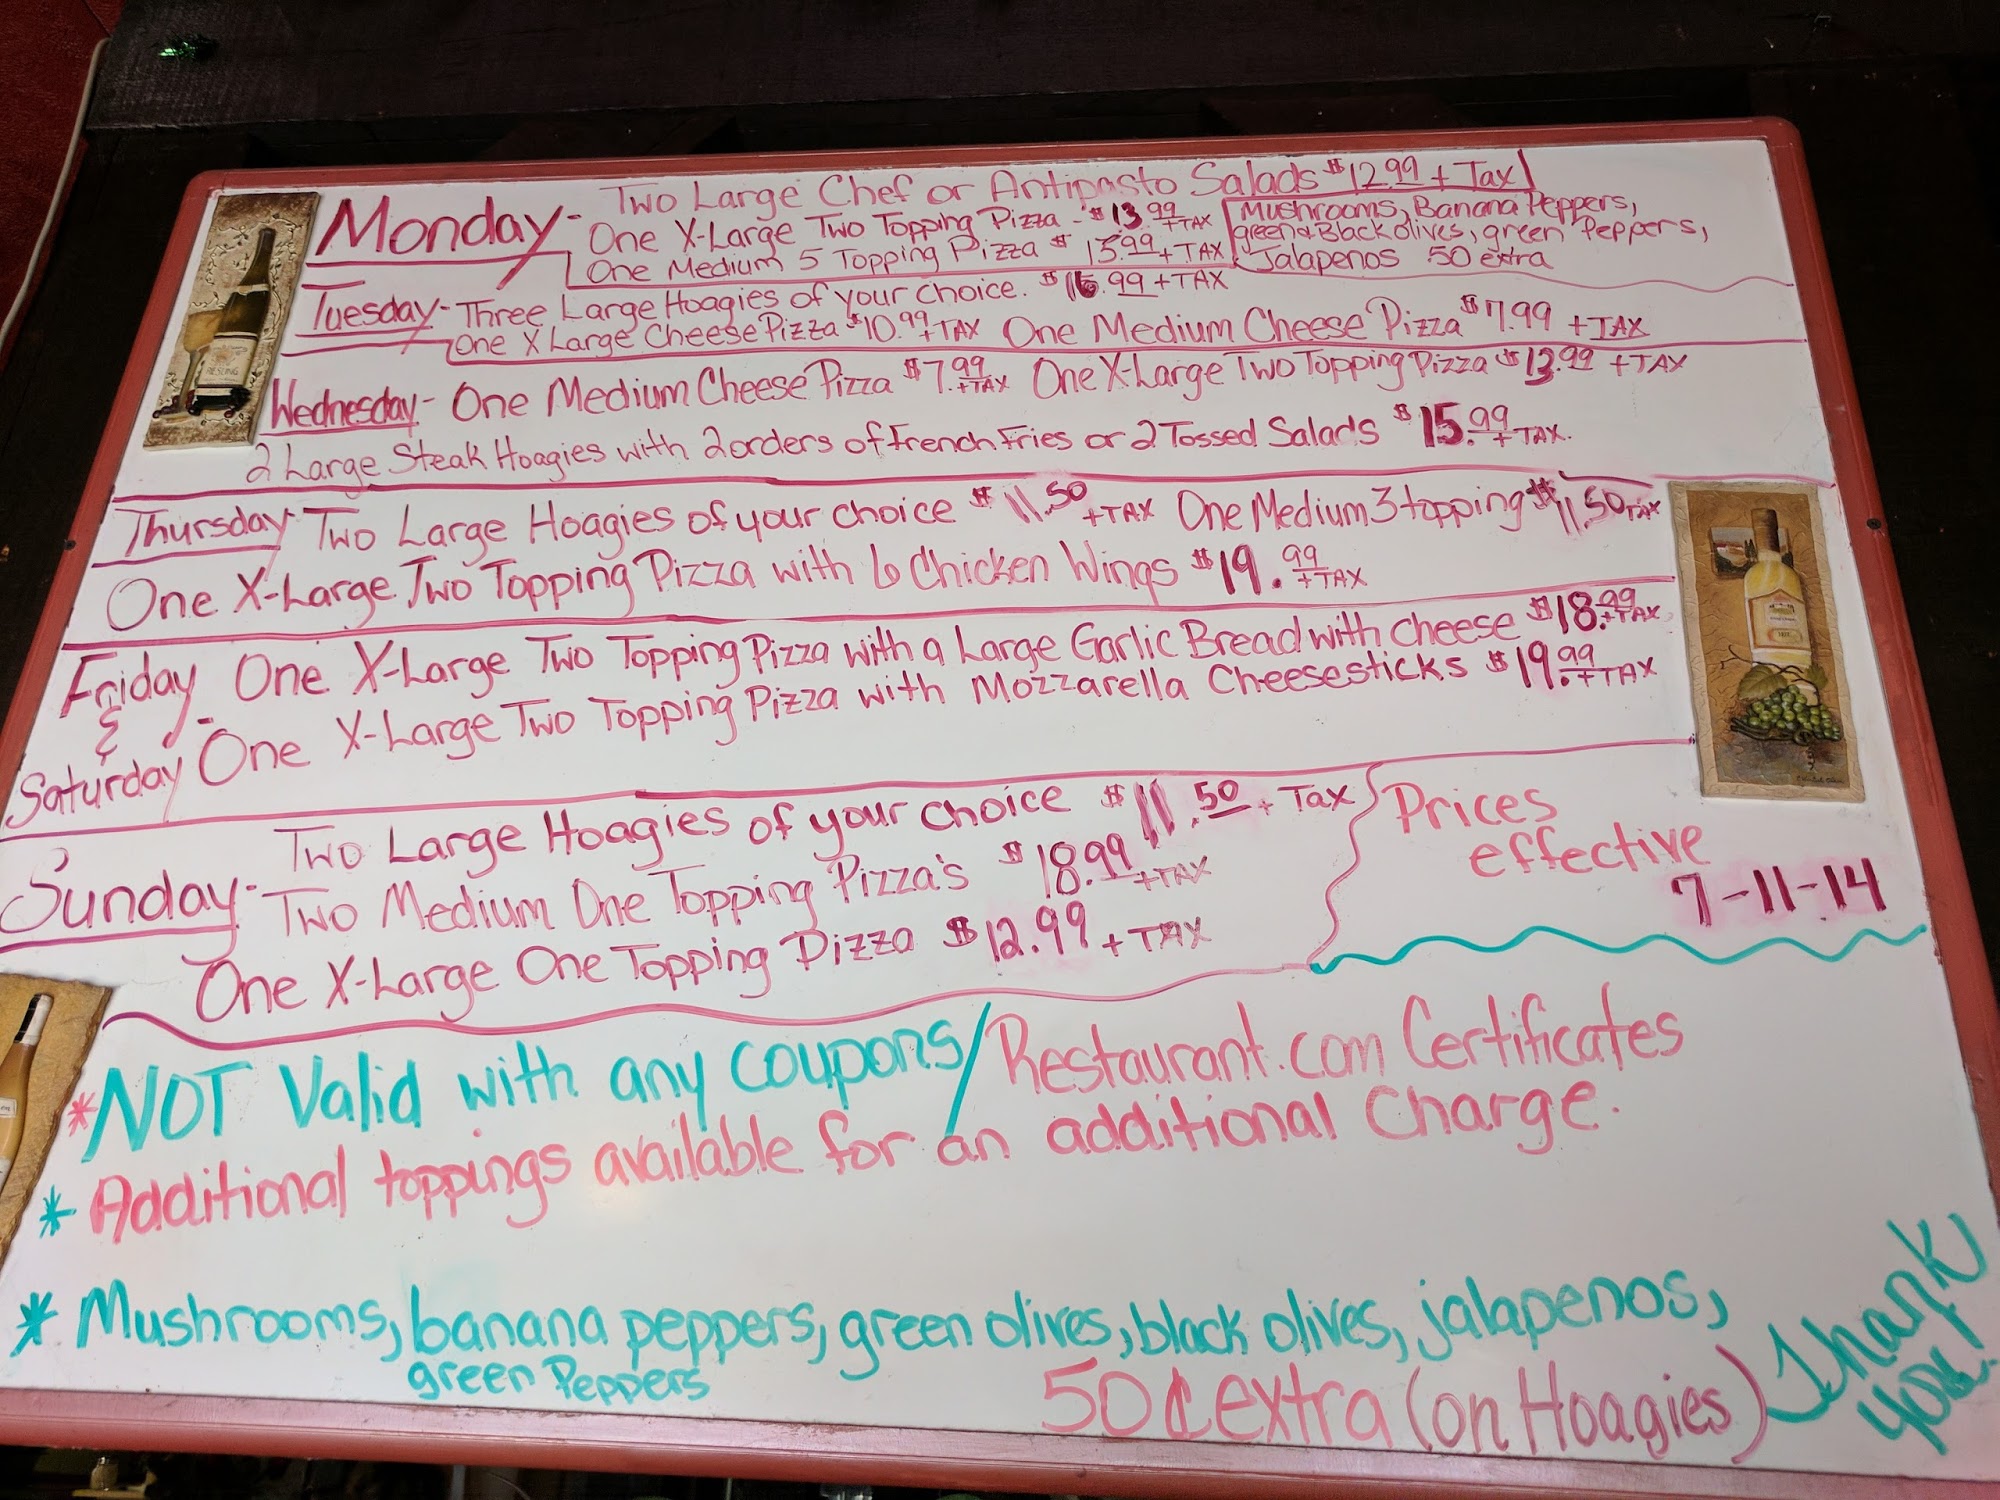 Two Large Chef or Antipasto Salads $12.99 + Tax
Monday - One X-Large Two Topping Pizza - $13.99 +TAX
One Medium 5 Topping Pizza $13.99 + TAX
Mushrooms, Banana Peppers,
green & Black olives, green Peppers,
Jalapenos .50 extra
Tuesday - Three Large Hoagies of your choice. $16.99 + TAX
One X Large Cheese Pizza $10.99 +TAX One Medium Cheese Pizza $7.99 +TAX
Wednesday - One Medium Cheese Pizza $7.99 +TAX One X-Large Two Topping Pizza $13.99 +TAX
2 Large Steak Hoagies with 2 orders of French Fries or 2 Tossed Salads $15.99 +TAX.
Thursday - Two Large Hoagies of your choice $11.50 +TAX One Medium 3 topping $11.50 TAX
One X-Large Two Topping Pizza with 6 Chicken Wings $19.99 +TAX
Friday - One X-Large Two Topping Pizza with a Large Garlic Bread with cheese $18.99 +TAX
&
Saturday - One X-Large Two Topping Pizza with Mozzarella Cheesesticks $19.99 +TAX
Two Large Hoagies of your choice $11.50 + Tax
Sunday - Two Medium One Topping Pizza's $18.99 +TAX
One X-Large One Topping Pizza $12.99 + TAX
Prices
effective
7-11-14
*NOT Valid with any coupons/Restaurant.com Certificates
* Additional toppings available for an additional Charge.
* Mushrooms, banana peppers, green olives, black olives, jalapenos,
green Peppers
50¢ extra (on Hoagies)
Thank
you!
RIESLING